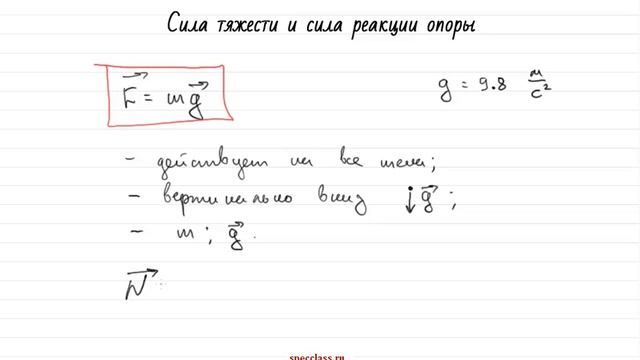 Сила тяжести и сила реакции опоры
F⃗ = mg⃗
g = 9.8 м/с²
- действует на все тела;
- вертикально вниз ↓g⃗ ;
- m ; g⃗ .
N⃗
specclass.ru